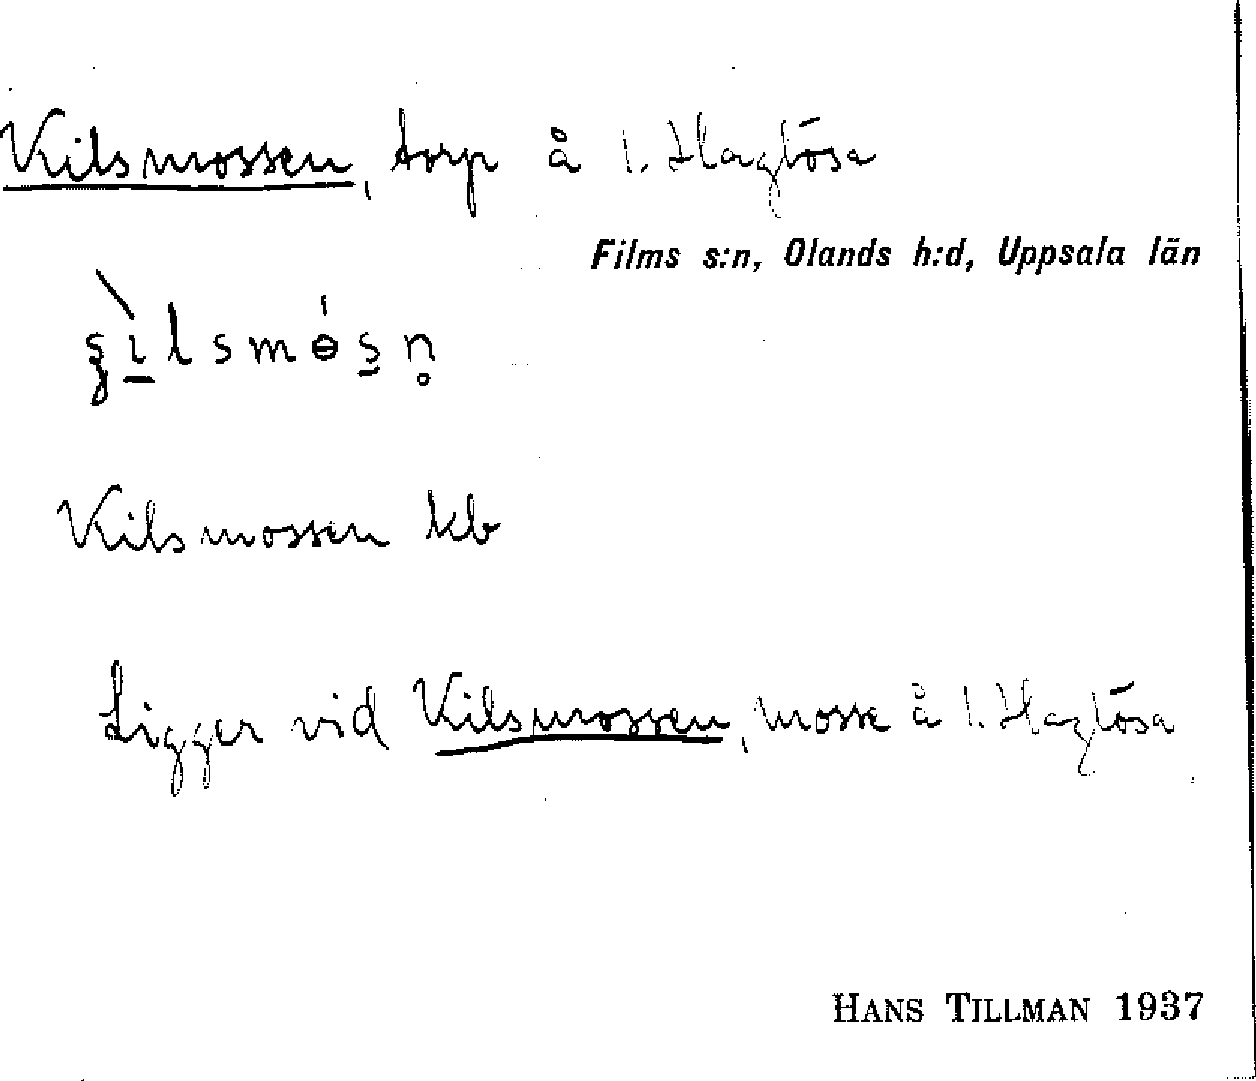 Kilsmossen, torp å 1. Haglösa
Films s:n, Olands h:d, Uppsala län
Kilsmossen kb
Ligger vid Kilsmossen, mosse å 1. Haglösa
HANS TILLMAN 1937